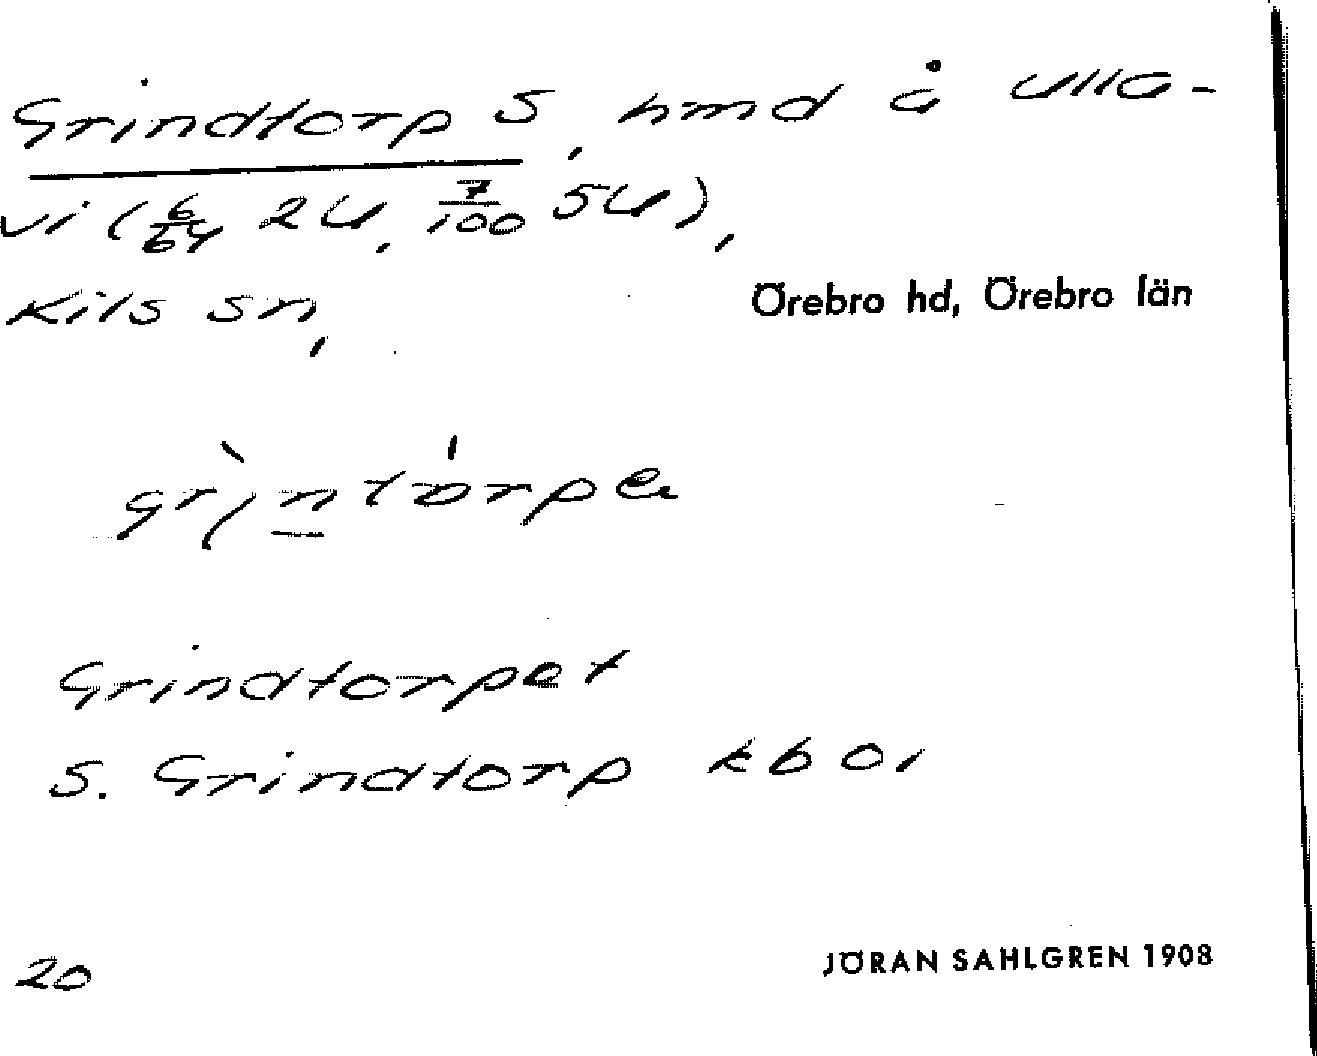 Grindtorp S, hmd å Ulla-
vi (6/64 2U, 7/100 5U),
Kils sn, Örebro hd, Örebro län
Grindtorpet
S. Grindtorp kbo,
20
JÖRAN SAHLGREN 1908